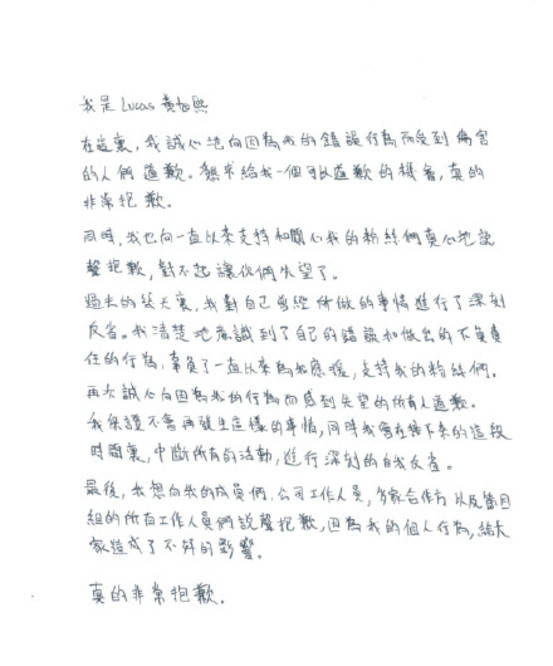 我是 Lucas 黃旭熙
在這裏，我誠心地向因為我的錯誤行為而受到傷害
的人們道歉。懇求給我一個可以道歉的機會，真的
非常抱歉。
同時，我也向一直以來支持和關心我的粉絲們真心地說
聲抱歉，對不起讓你們失望了。
過去的幾天裏，我對自己曾經所做的事情進行了深刻
反省。我清楚地意識到了自己的錯誤和做出的不負責
任的行為，辜負了一直以來為我應援，支持我的粉絲們。
再次誠心向因為我的行為而感到失望的所有人道歉。
我保證不會再發生這樣的事情，同時我會在接下來的這段
時間裏，中斷所有的活動，進行深刻的自我反省。
最後，我想向我的成員們，公司工作人員，多家合作方以及節目
組的所有工作人員們說聲抱歉，因為我的個人行為，給大
家造成了不好的影響。
真的非常抱歉.